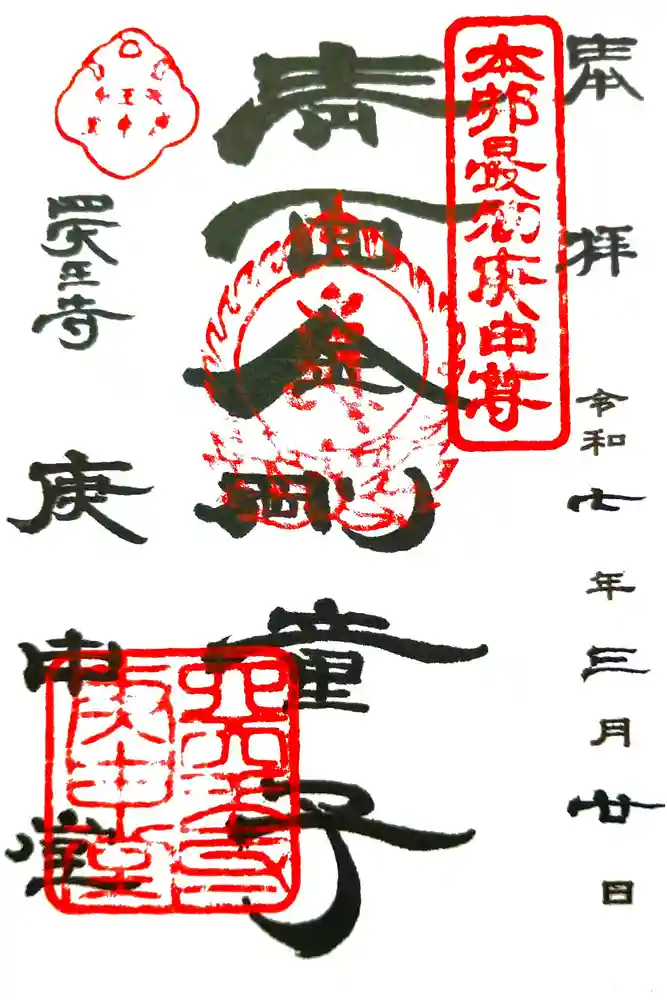 奉拝
令和七年三月廿日
本邦最初庚申尊
青面金剛童子
四天王寺
庚申堂
四天王寺
庚申堂